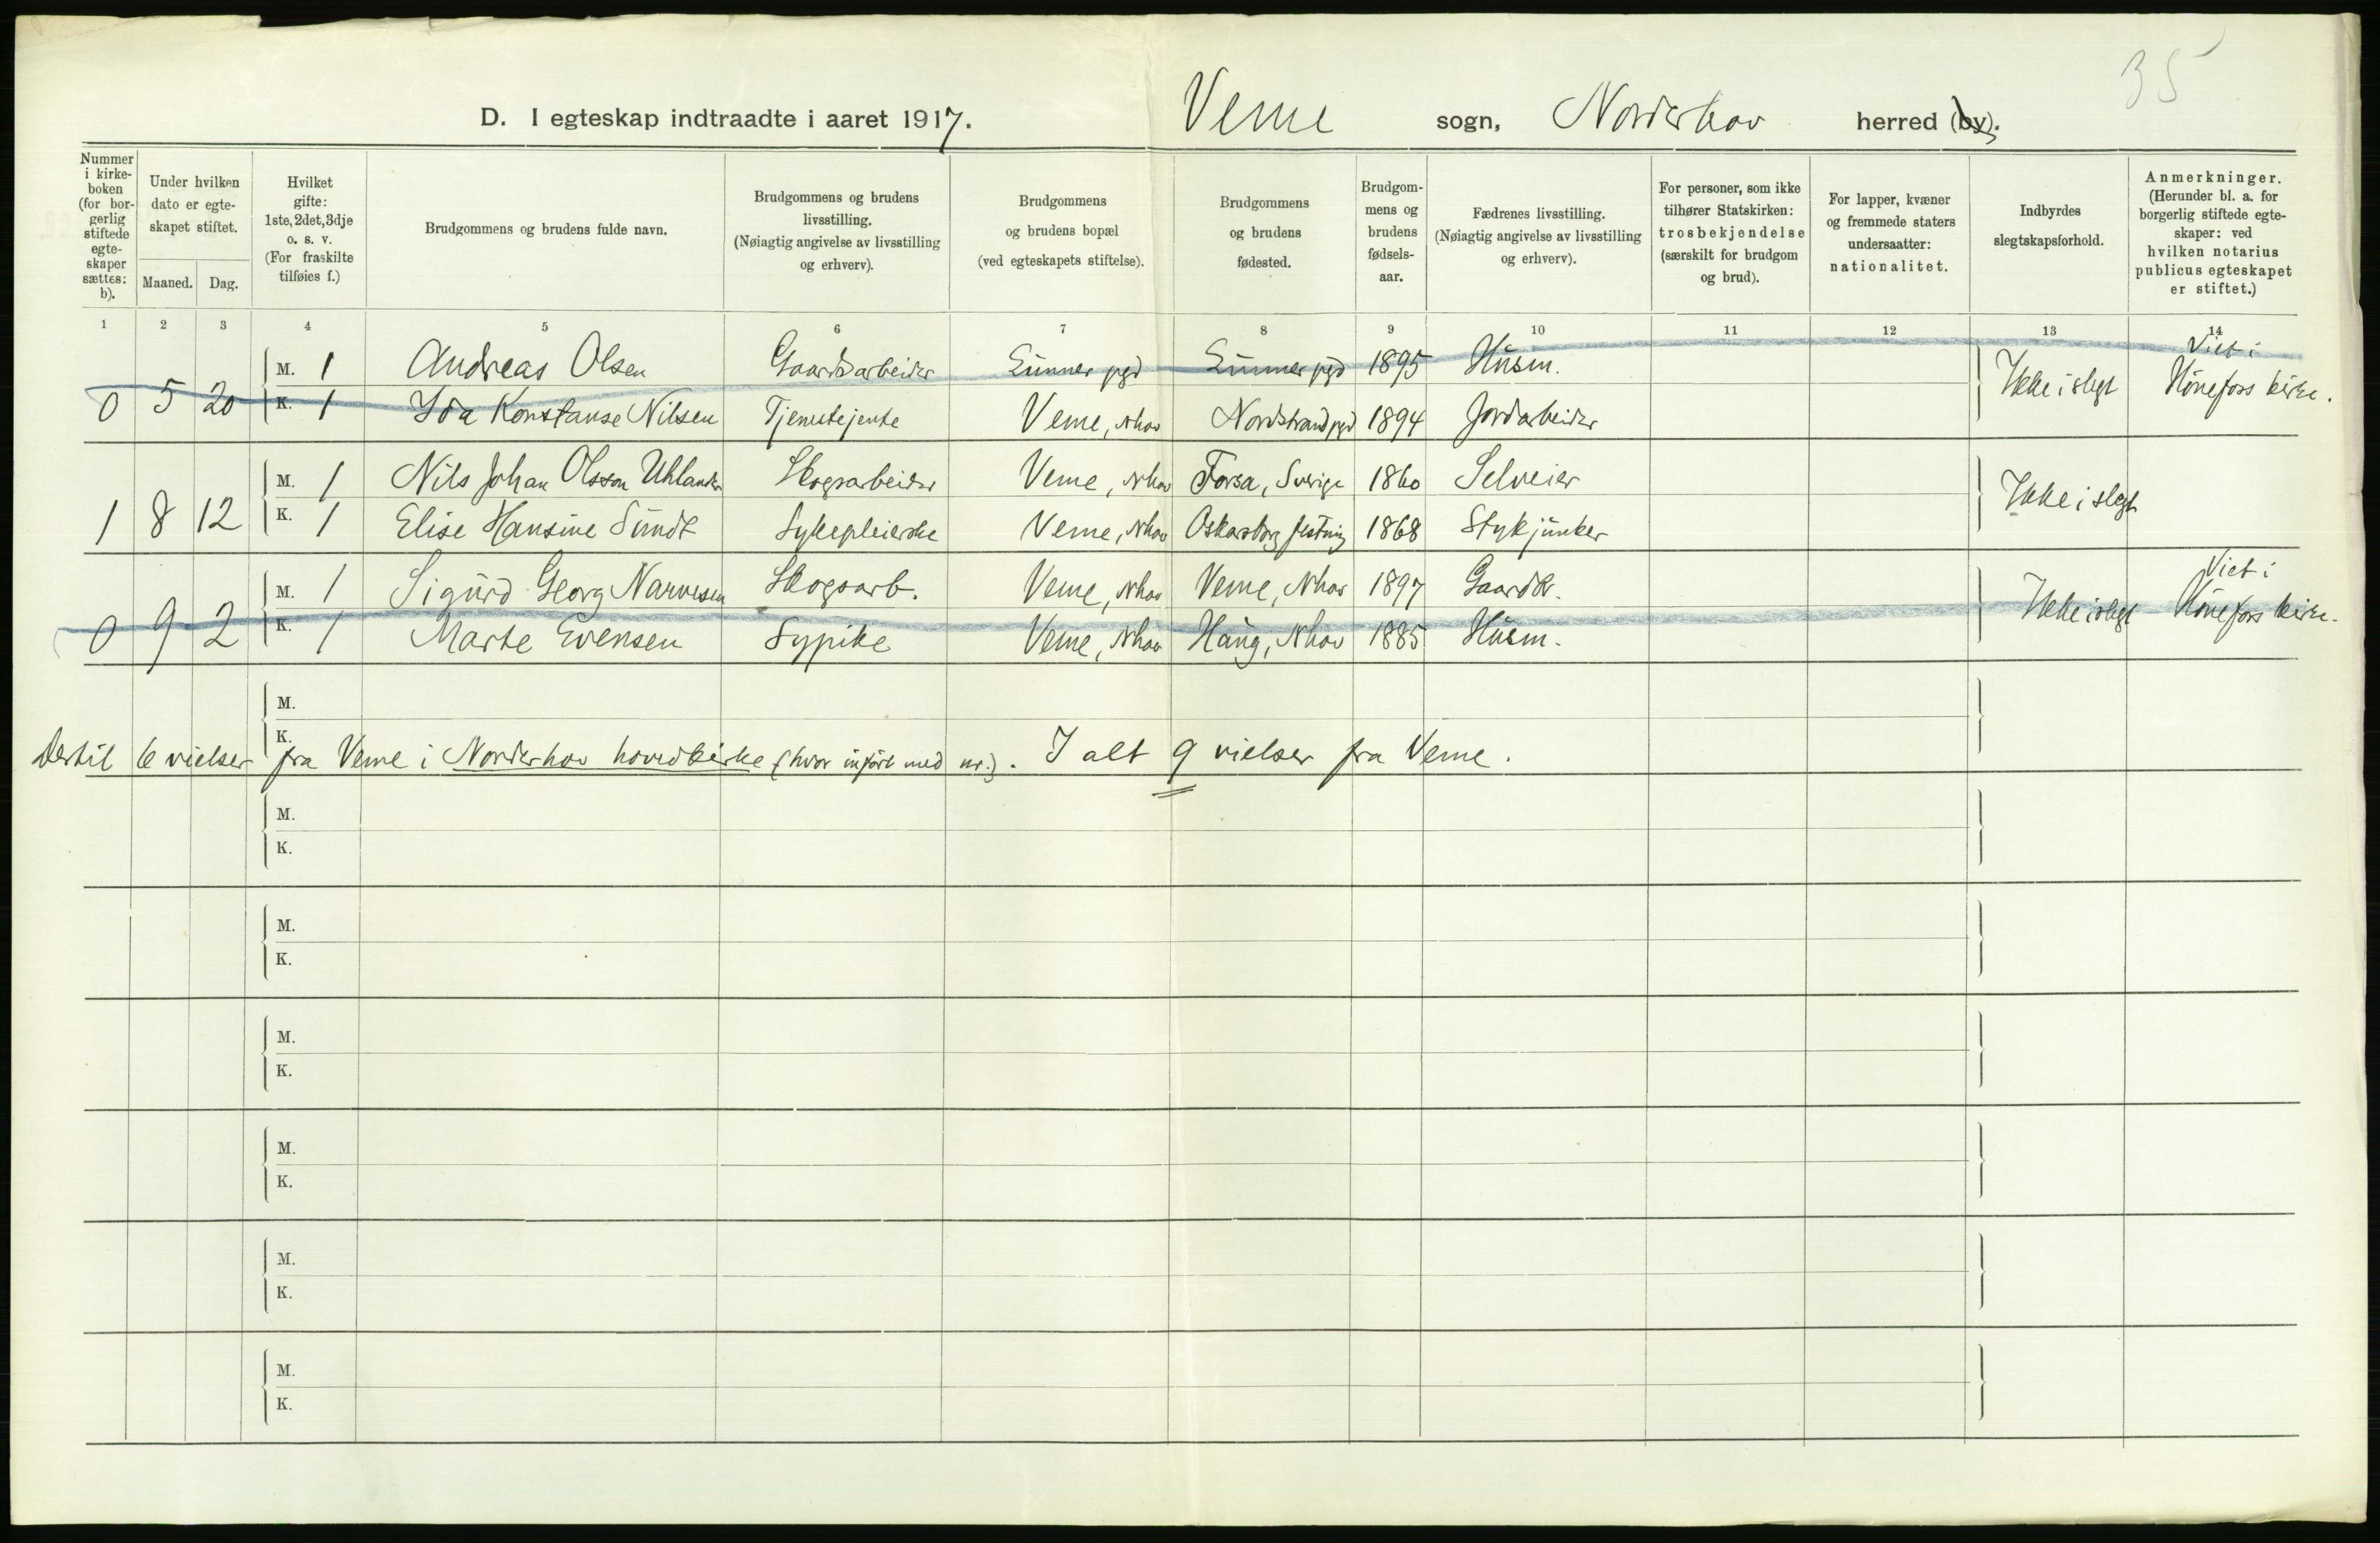 35
D. I egteskap indtraadte i aaret 1917. Veme sogn, Norderhov herred (by).
Nummer i kirke-boken (for bor-gerlig stiftede egte-skaper sættes: b).
Under hvilken dato er egte-skapet stiftet.
Maaned. Dag.
Hvilket gifte: 1ste, 2det, 3dje o. s. v. (For fraskilte tilføies f.)
Brudgommens og brudens fulde navn.
Brudgommens og brudens livsstilling. (Nøiagtig angivelse av livsstilling og erhverv).
Brudgommens og brudens bopæl (ved egteskapets stiftelse).
Brudgommens og brudens fødested.
Brudgom-mens og brudens fødsels-aar.
Fædrenes livsstilling. (Nøiagtig angivelse av livsstilling og erhverv).
For personer, som ikke tilhører Statskirken: trosbekjendelse (særskilt for brudgom og brud).
For lapper, kvæner og fremmede staters undersaatter: nationalitet.
Indbyrdes slegtskapsforhold.
Anmerkninger. (Herunder bl. a. for borgerlig stiftede egte-skaper: ved hvilken notarius publicus egteskapet er stiftet.)
1 2 3 4 5 6 7 8 9 10 11 12 13 14
M. 1 Andreas Olsen Gaardsarbeider Lunner pgd Lunner pgd 1895 Husm. Ikke i slegt Viet i
0 5 20 K. 1 Ida Konstanse Nilsen Tjenestejente Veme, Nhov Nordstrand pgd 1894 Jordarbeider Hönefoss kirke.
M. 1 Nils Johan Olsson Uhlander Skogsarbeider Veme, Nhov Forsa, Sverige 1860 Selveier Ikke i slegt
1 8 12 K. 1 Elise Hansine Sundt Sykepleierske Veme, Nhov Oskarsborg festning 1868 Stykjunker
M. 1 Sigurd Georg Narvesen Skogsarb. Veme, Nhov Veme, Nhov 1897 Gaardbr. Ikke i slegt Viet i
0 9 2 K. 1 Marte Evensen Sypike Veme, Nhov Haug, Nhov 1885 Husm. Hönefoss kirke.
M.
K.
Dertil 6 vielser fra Veme i Norderhov hovedkirke (hvor infört med nr.). I alt 9 vielser fra Veme.
M.
K.
M.
K.
M.
K.
M.
K.
M.
K.
M.
K.